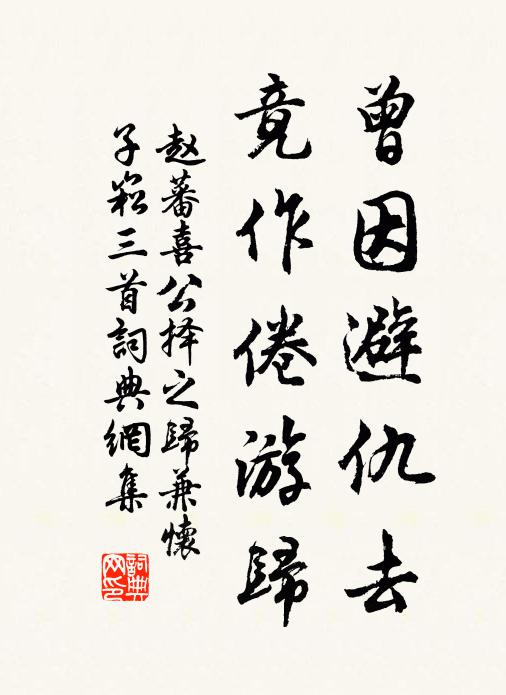 曾因避仇去
竟作倦游歸
赵蕃喜公择之歸兼懷
子崧三首詞典網集
詞典
网印